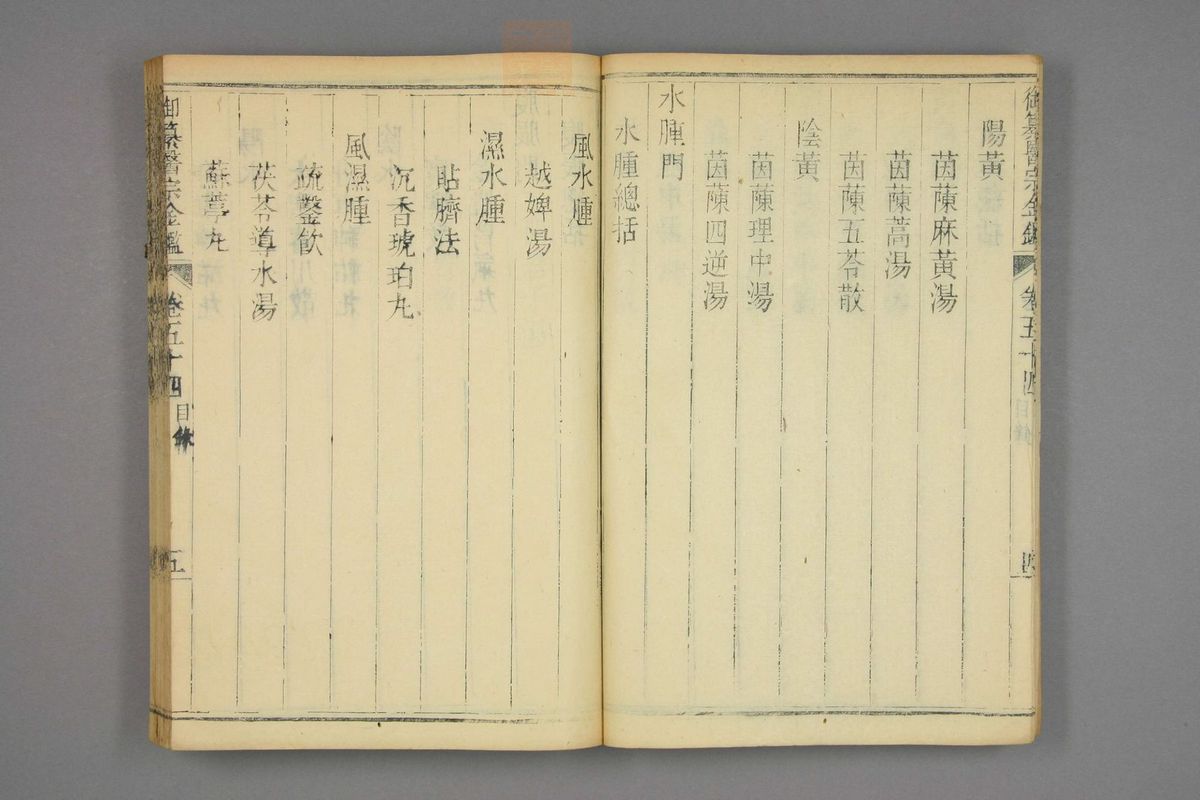 御纂醫宗金鑑
卷五十四
四
陽黃
茵蔯麻黃湯
茵蔯蒿湯
茵蔯五苓散
陰黃
茵蔯理中湯
茵蔯四逆湯
水腫門
水腫總括
風水腫
越婢湯
濕水腫
貼臍法
沉香琥珀丸
風濕腫
疏鑿飲
茯苓導水湯
蘇葶丸
御纂醫宗金鑑
卷五十四
目錄
五